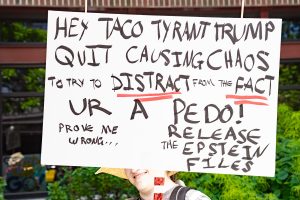 HEY TACO TYRANT TRUMP
QUIT CAUSING CHAOS
TO TRY TO DISTRACT FROM THE FACT
UR A PEDO!
PROVE ME
WRONG...
RELEASE
THE EPSTEIN
FILES